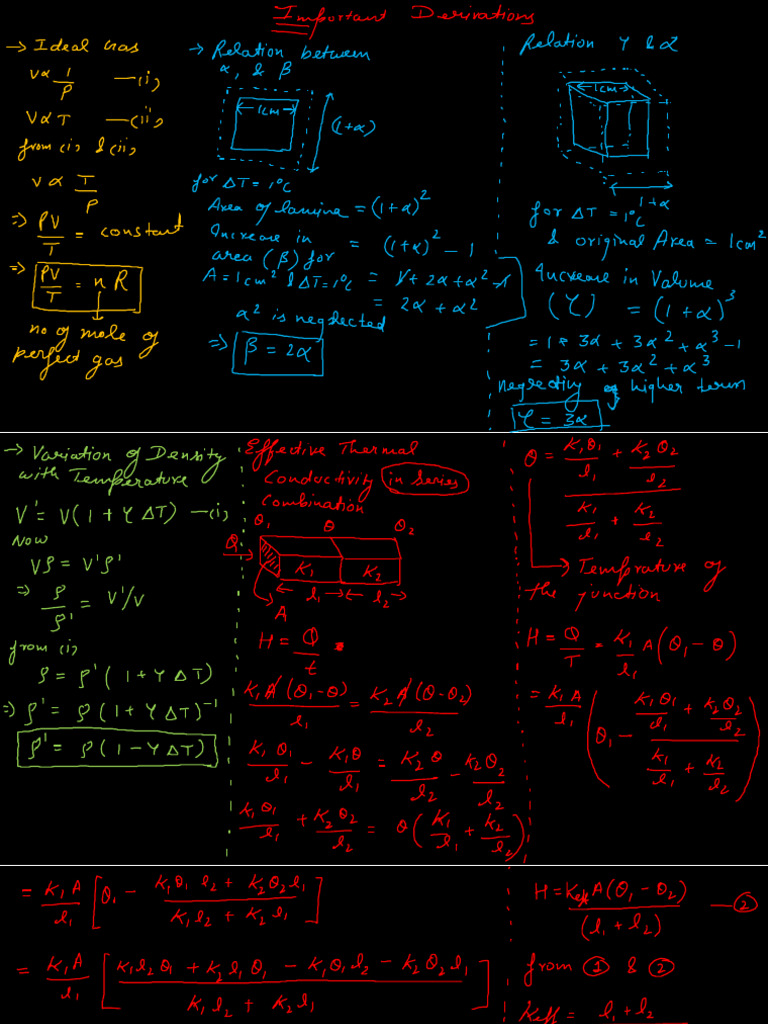 Important Derivations
→ Ideal Gas
V∝ 1/P —(i)
V∝T —(ii)
from (i) & (ii)
V ∝ T/P
⇒ PV/T = constant
⇒ PV/T = nR
no of mole of
perfect gas
→ Relation between
α, & β
←1cm→
(1+α)
for ΔT = 1°C
Area of lamina = (1+α)²
Increase in
area (β) for = (1+α)² − 1
A = 1cm² & ΔT = 1°C = 1 + 2α + α² − 1
= 2α + α²
α² is neglected
⇒ β = 2α
Relation γ & α
←1cm→
1+α
for ΔT = 1°C
& original Area = 1cm²
Increase in Volume
(γ) = (1+α)³
= 1 + 3α + 3α² + α³ − 1
= 3α + 3α² + α³
neglecting higher term
γ = 3α
→ Variation of Density
with Temperature
V' = V(1 + γΔT) —(i)
Now
Vρ = V'ρ'
⇒ ρ/ρ' = V'/V
from (i)
ρ = ρ' (1 + γΔT)
⇒ ρ' = ρ (1 + γΔT)⁻¹
ρ' = ρ (1 − γΔT)
Effective Thermal
Conductivity in Series
Combination
θ₁ θ θ₂
Q
K₁ K₂
← l₁ →← l₂ →
A
H = Q/t
K₁A(θ₁−θ)/l₁ = K₂A(θ−θ₂)/l₂
K₁θ₁/l₁ − K₁θ/l₁ = K₂θ/l₂ − K₂θ₂/l₂
K₁θ₁/l₁ + K₂θ₂/l₂ = θ(K₁/l₁ + K₂/l₂)
θ = (K₁θ₁/l₁ + K₂θ₂/l₂)/(K₁/l₁ + K₂/l₂)
→ Temprature of
the junction
H = Q/T = K₁/l₁ A(θ₁ − θ)
= K₁A/l₁ (θ₁ − (K₁θ₁/l₁ + K₂θ₂/l₂)/(K₁/l₁ + K₂/l₂))
= K₁A/l₁ [θ₁ − (K₁θ₁l₂ + K₂θ₂l₁)/(K₁l₂ + K₂l₁)]
= K₁A/l₁ [(K₁l₂θ₁ + K₂l₁θ₁ − K₁θ₁l₂ − K₂θ₂l₁)/(K₁l₂ + K₂l₁)]
H = Keff A(θ₁ − θ₂)/(l₁ + l₂) —②
from ① & ②
Keff = l₁ + l₂